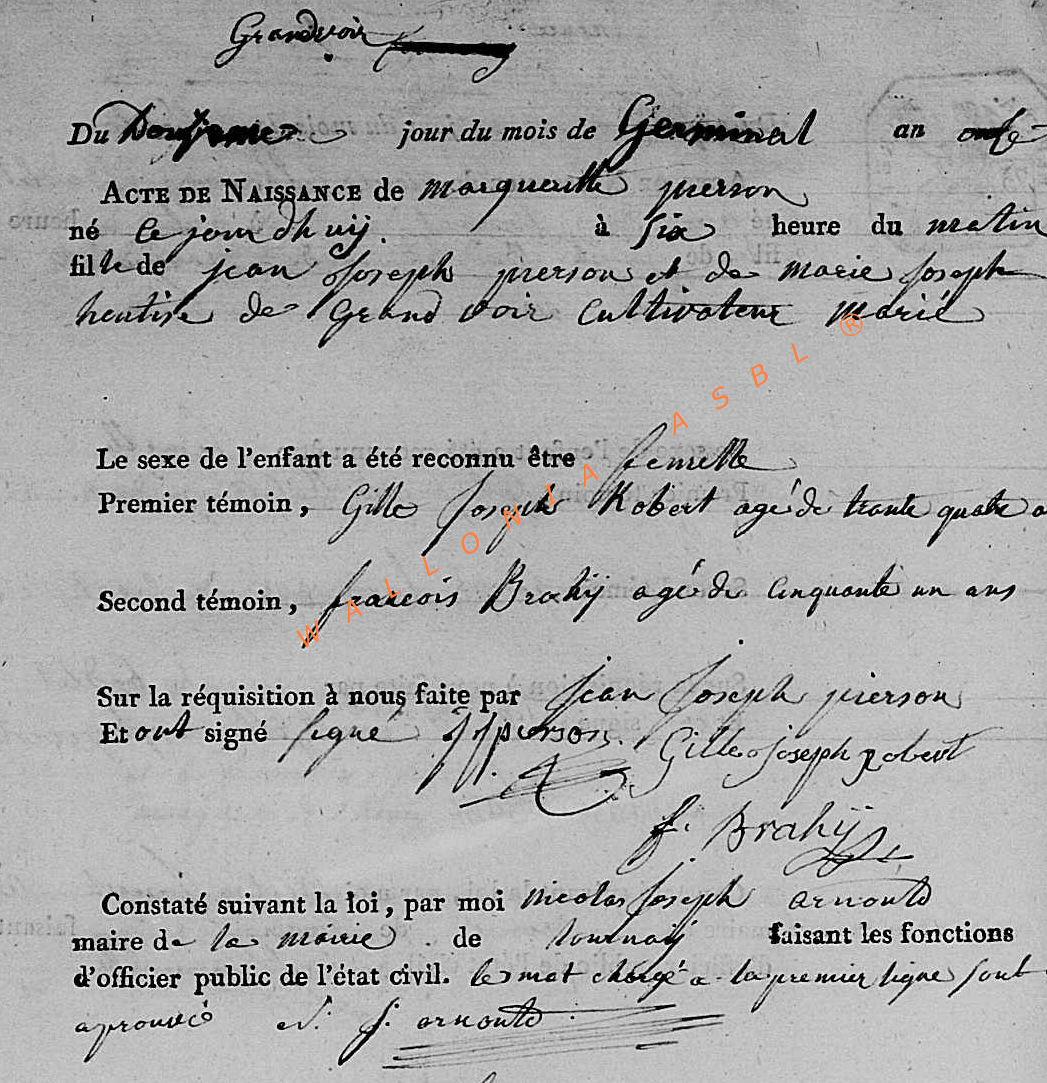 Grandvoir
Du jour du mois de Germinal an onze
ACTE DE NAISSANCE de margueritte pierson
né ce jourdhuij. à six heure du matin
fille de jean joseph pierson et de marie joseph
hentise de Grand voir cultivateur marié
Le sexe de l'enfant a été reconnu être femelle
Premier témoin, Gille Joseph Robert agé de trante quatre a
Second témoin, francois Brahij agé de cinquante un ans
Sur la réquisition à nous faite par jean Joseph pierson
Et ont signé signé JJ pierson. Gille joseph robert
f. Brahij
Constaté suivant la loi, par moi nicolas joseph arnould
maire de la mairie de tournaij faisant les fonctions
d'officier public de l'état civil. les mot chargé a la premier ligne sont
aprouvé N. j. arnould
WALLONIA ASBL ®